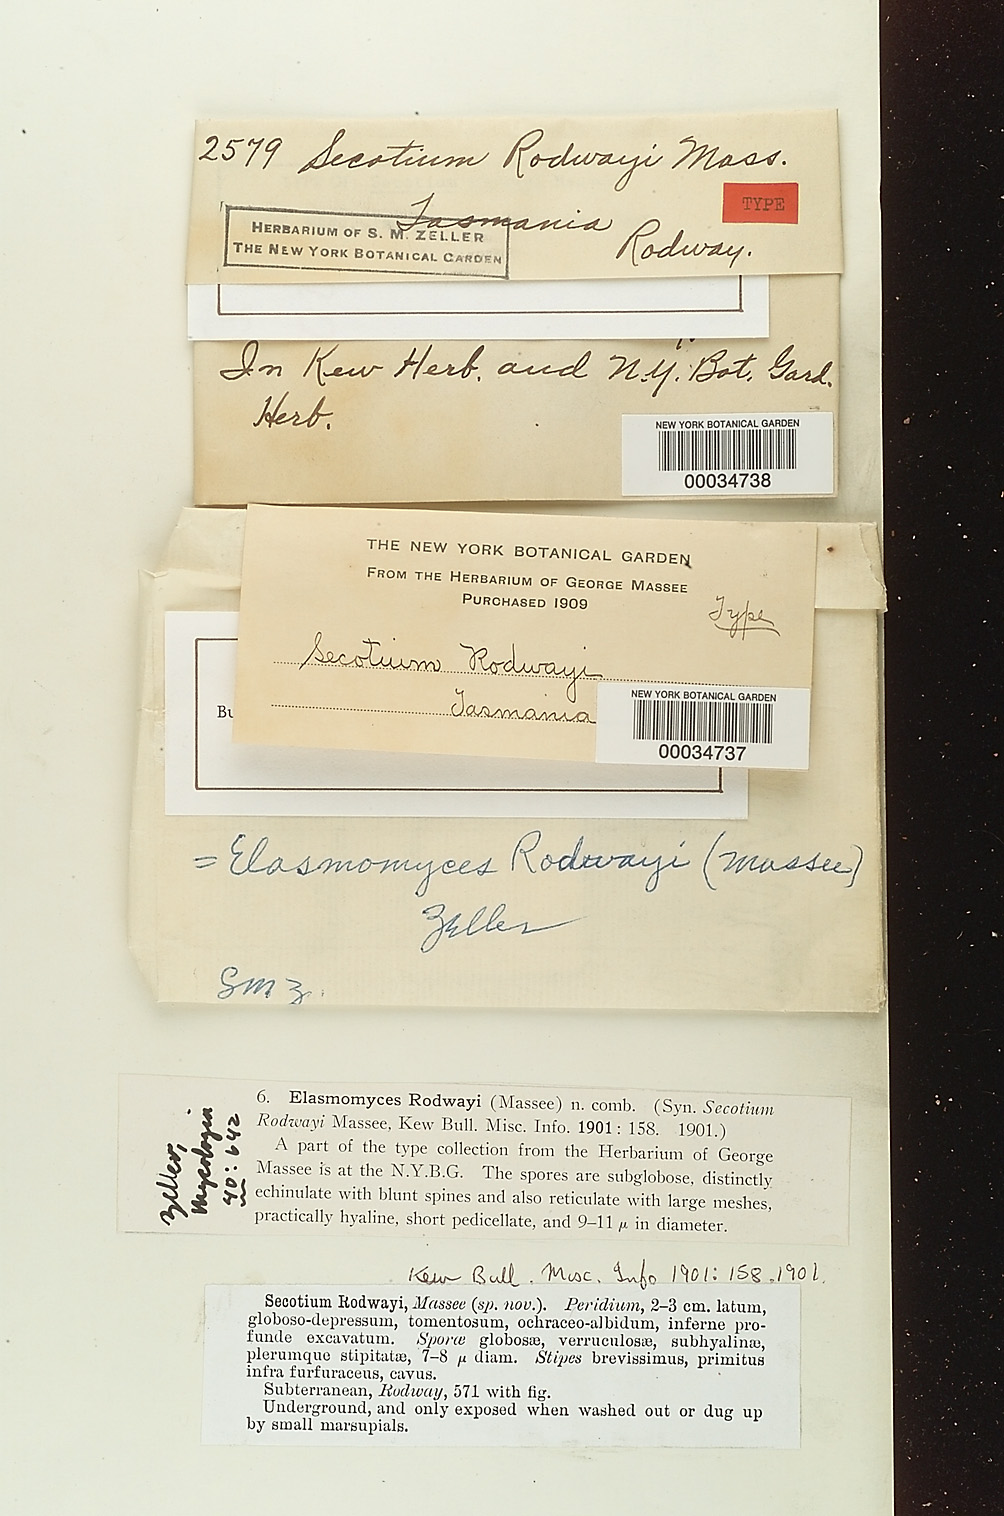 2579 Secotium Rodwayi Mass.
TYPE
Tasmania
HERBARIUM OF S. M. ZELLER
THE NEW YORK BOTANICAL GARDEN
Rodway.
In Kew Herb. and N.Y. Bot. Gard.
Herb.
NEW YORK BOTANICAL GARDEN
00034738
THE NEW YORK BOTANICAL GARDEN
FROM THE HERBARIUM OF GEORGE MASSEE
PURCHASED 1909
Type
Secotium Rodwayi
Tasmania
NEW YORK BOTANICAL GARDEN
00034737
Bu
= Elasmomyces Rodwayi (Massee)
Zeller
SMZ.
Zeller,
Mycologia
40: 642
6. Elasmomyces Rodwayi (Massee) n. comb. (Syn. Secotium
Rodwayi Massee, Kew Bull. Misc. Info. 1901: 158. 1901.)
A part of the type collection from the Herbarium of George
Massee is at the N.Y.B.G. The spores are subglobose, distinctly
echinulate with blunt spines and also reticulate with large meshes,
practically hyaline, short pedicellate, and 9–11 μ in diameter.
Kew Bull. Misc. Info 1901: 158. 1901.
Secotium Rodwayi, Massee (sp. nov.). Peridium, 2–3 cm. latum,
globoso-depressum, tomentosum, ochraceo-albidum, inferne pro-
funde excavatum. Sporæ globosæ, verruculosæ, subhyalinæ,
plerumque stipitatæ, 7–8 μ diam. Stipes brevissimus, primitus
infra furfuraceus, cavus.
Subterranean, Rodway, 571 with fig.
Underground, and only exposed when washed out or dug up
by small marsupials.